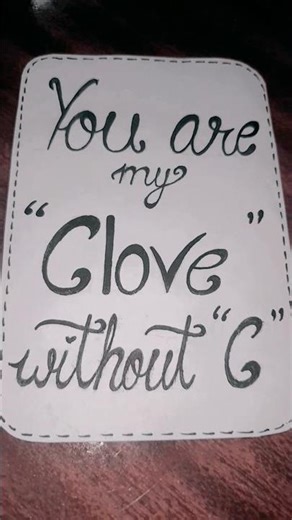 You are
my
"Clove"
without "C"